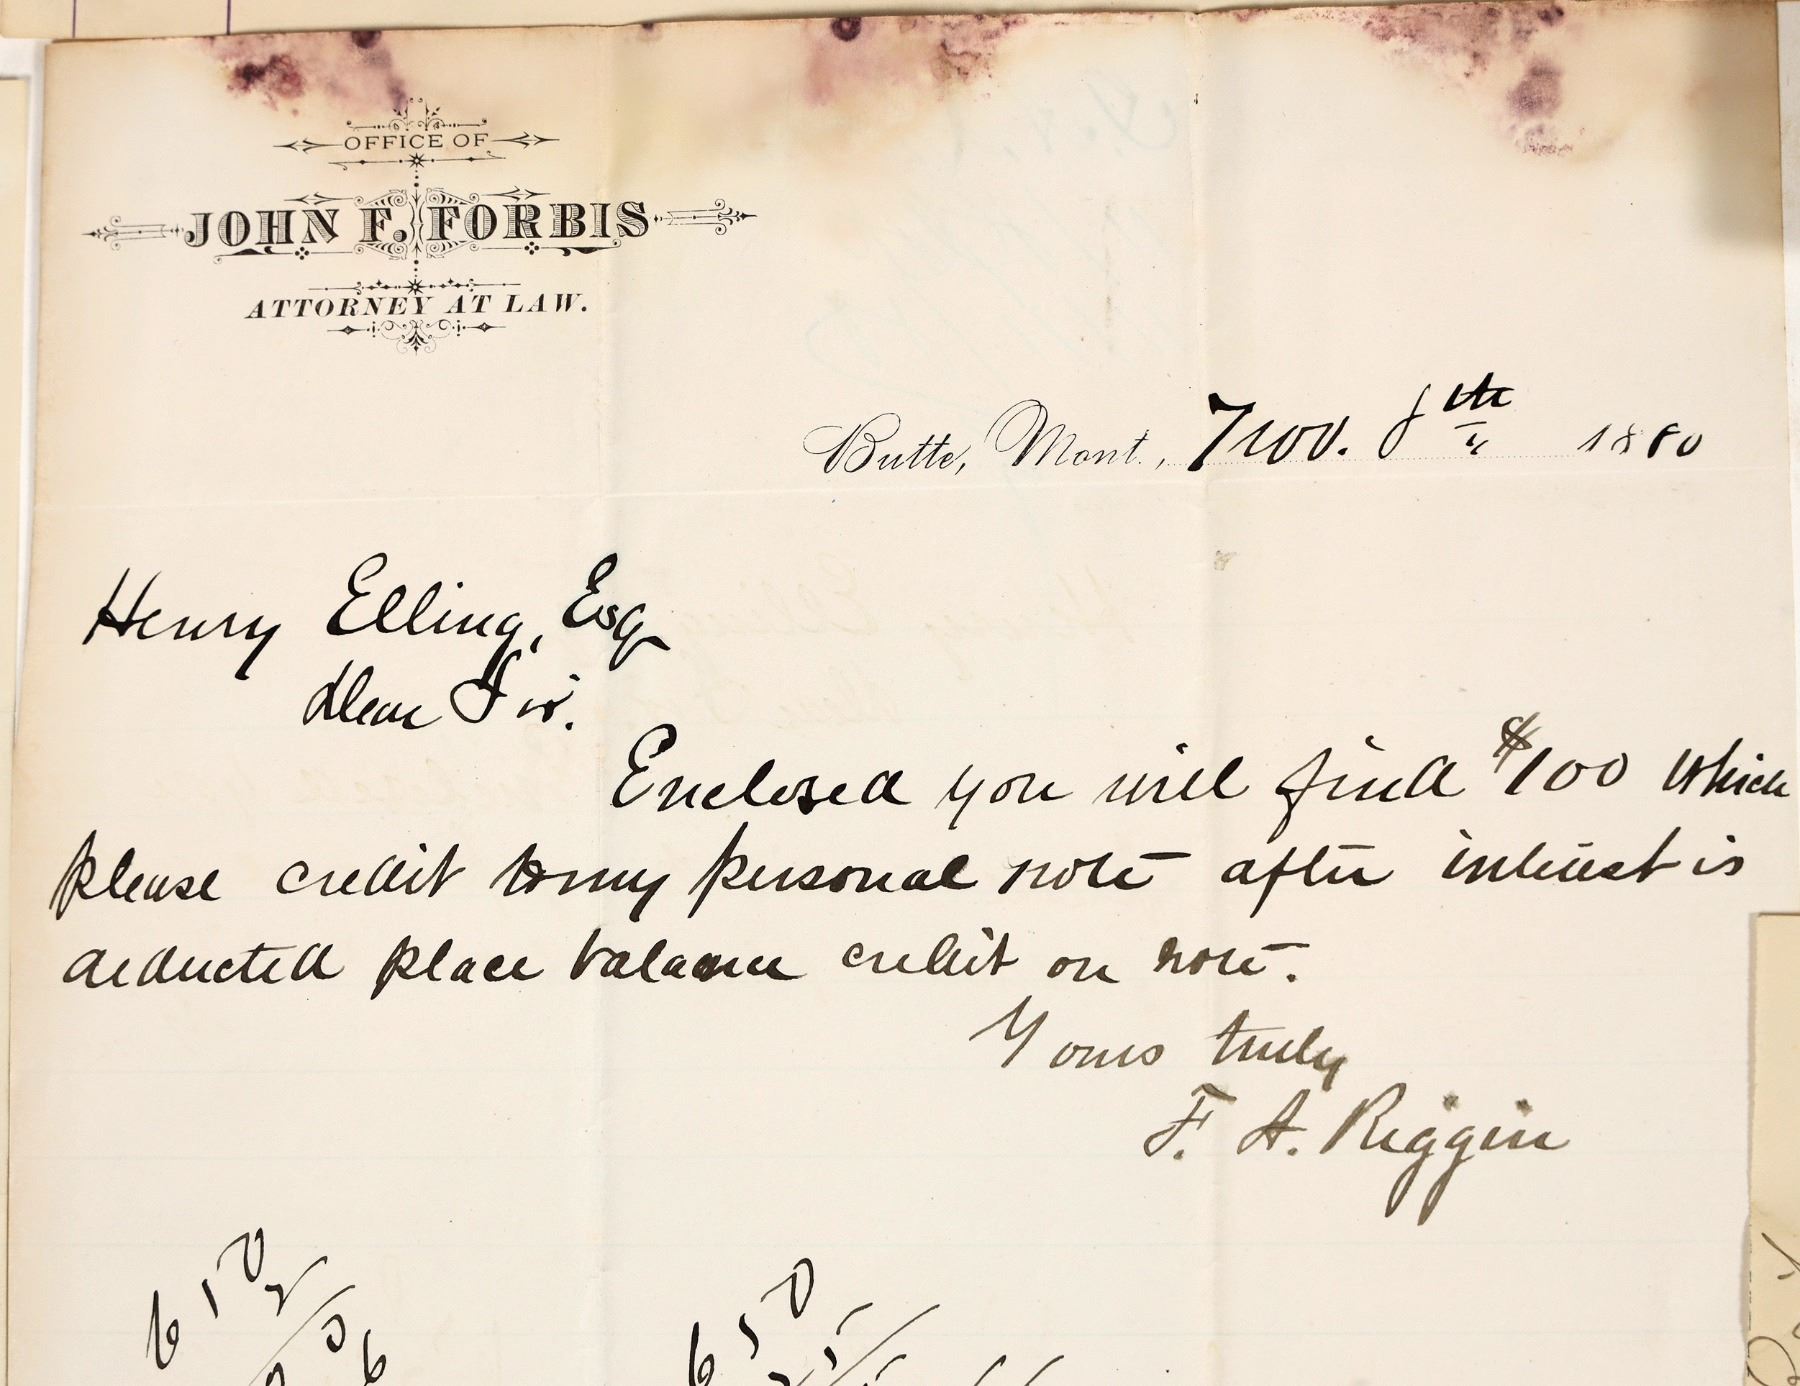 OFFICE OF
JOHN F. FORBIS
ATTORNEY AT LAW.
Butte, Mont., Nov. 8th 1880
Henry Elling, Esq
Dear Sir.
Enclosed you will find $100 which
please credit to my personal note after interest is
deducted place balance credit on note.
Yours truly
F. A. Riggin